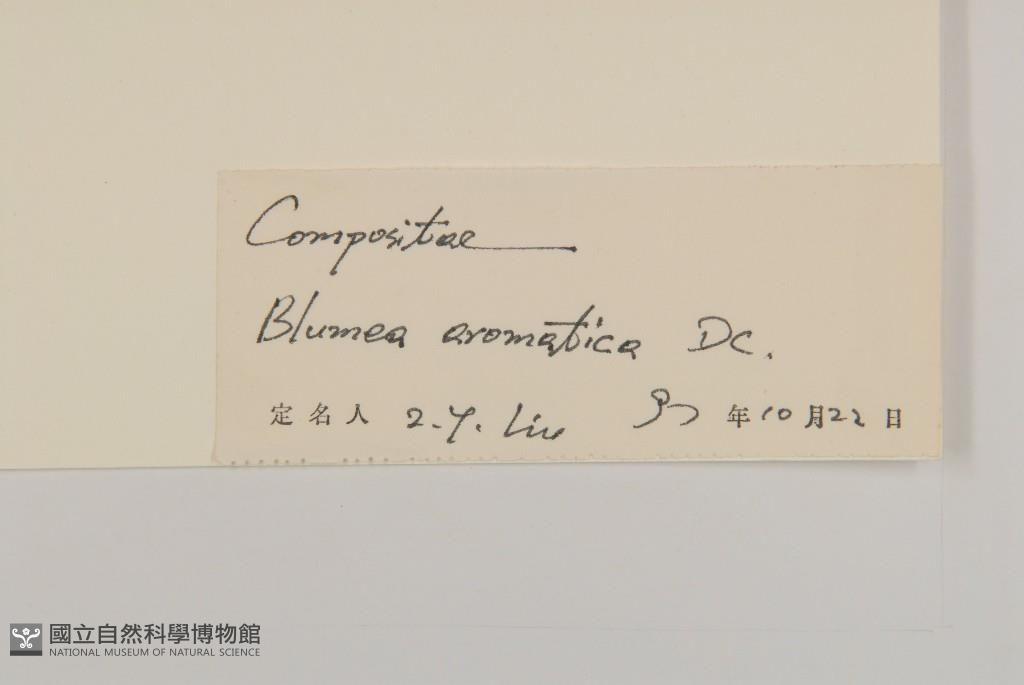 Compositae
Blumea aromatica DC.
定名人 Z.Y. Liu 年10月22日
國立自然科學博物館
NATIONAL MUSEUM OF NATURAL SCIENCE